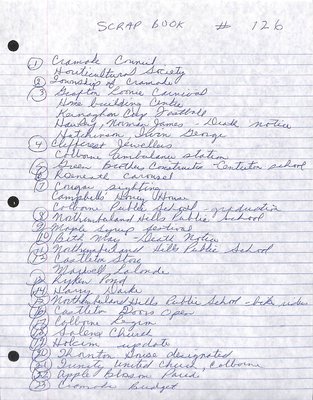 SCRAP BOOK # 126
1 Cramahe Council
Horticultural Society
2 Township of Cramahe
3 Grafton Loonie Carnival
Home building Centre
Kernaghan Cup Football
Harding, Norman James - Death notice
Hutchinson, Thorn George
4 Cliffcrest Jewellers
Colborne Ambulance station
5 Green Brother Construction - Centreton school
6 Roseneath Carousel
7 Cougar sighting
Campbells Honey House
Colborne Public School - graduation
8 Northumberland Hills Public School
9 Maple Syrup festival
10 Beth May - Death Notice
11 Northumberland Hills Public School
12 Castleton Story
Maxwell Lalonde
13 Pond
14 Harry
15 Northumberland Hills Public School -
16 Castleton Doors Open
17 Colborne Legion
18 Salem Church
19 Holcim update
20 Thornton designated
21 Trinity United Church, Colborne
22 Apple Blossom Parade
23 Cramahe Budget